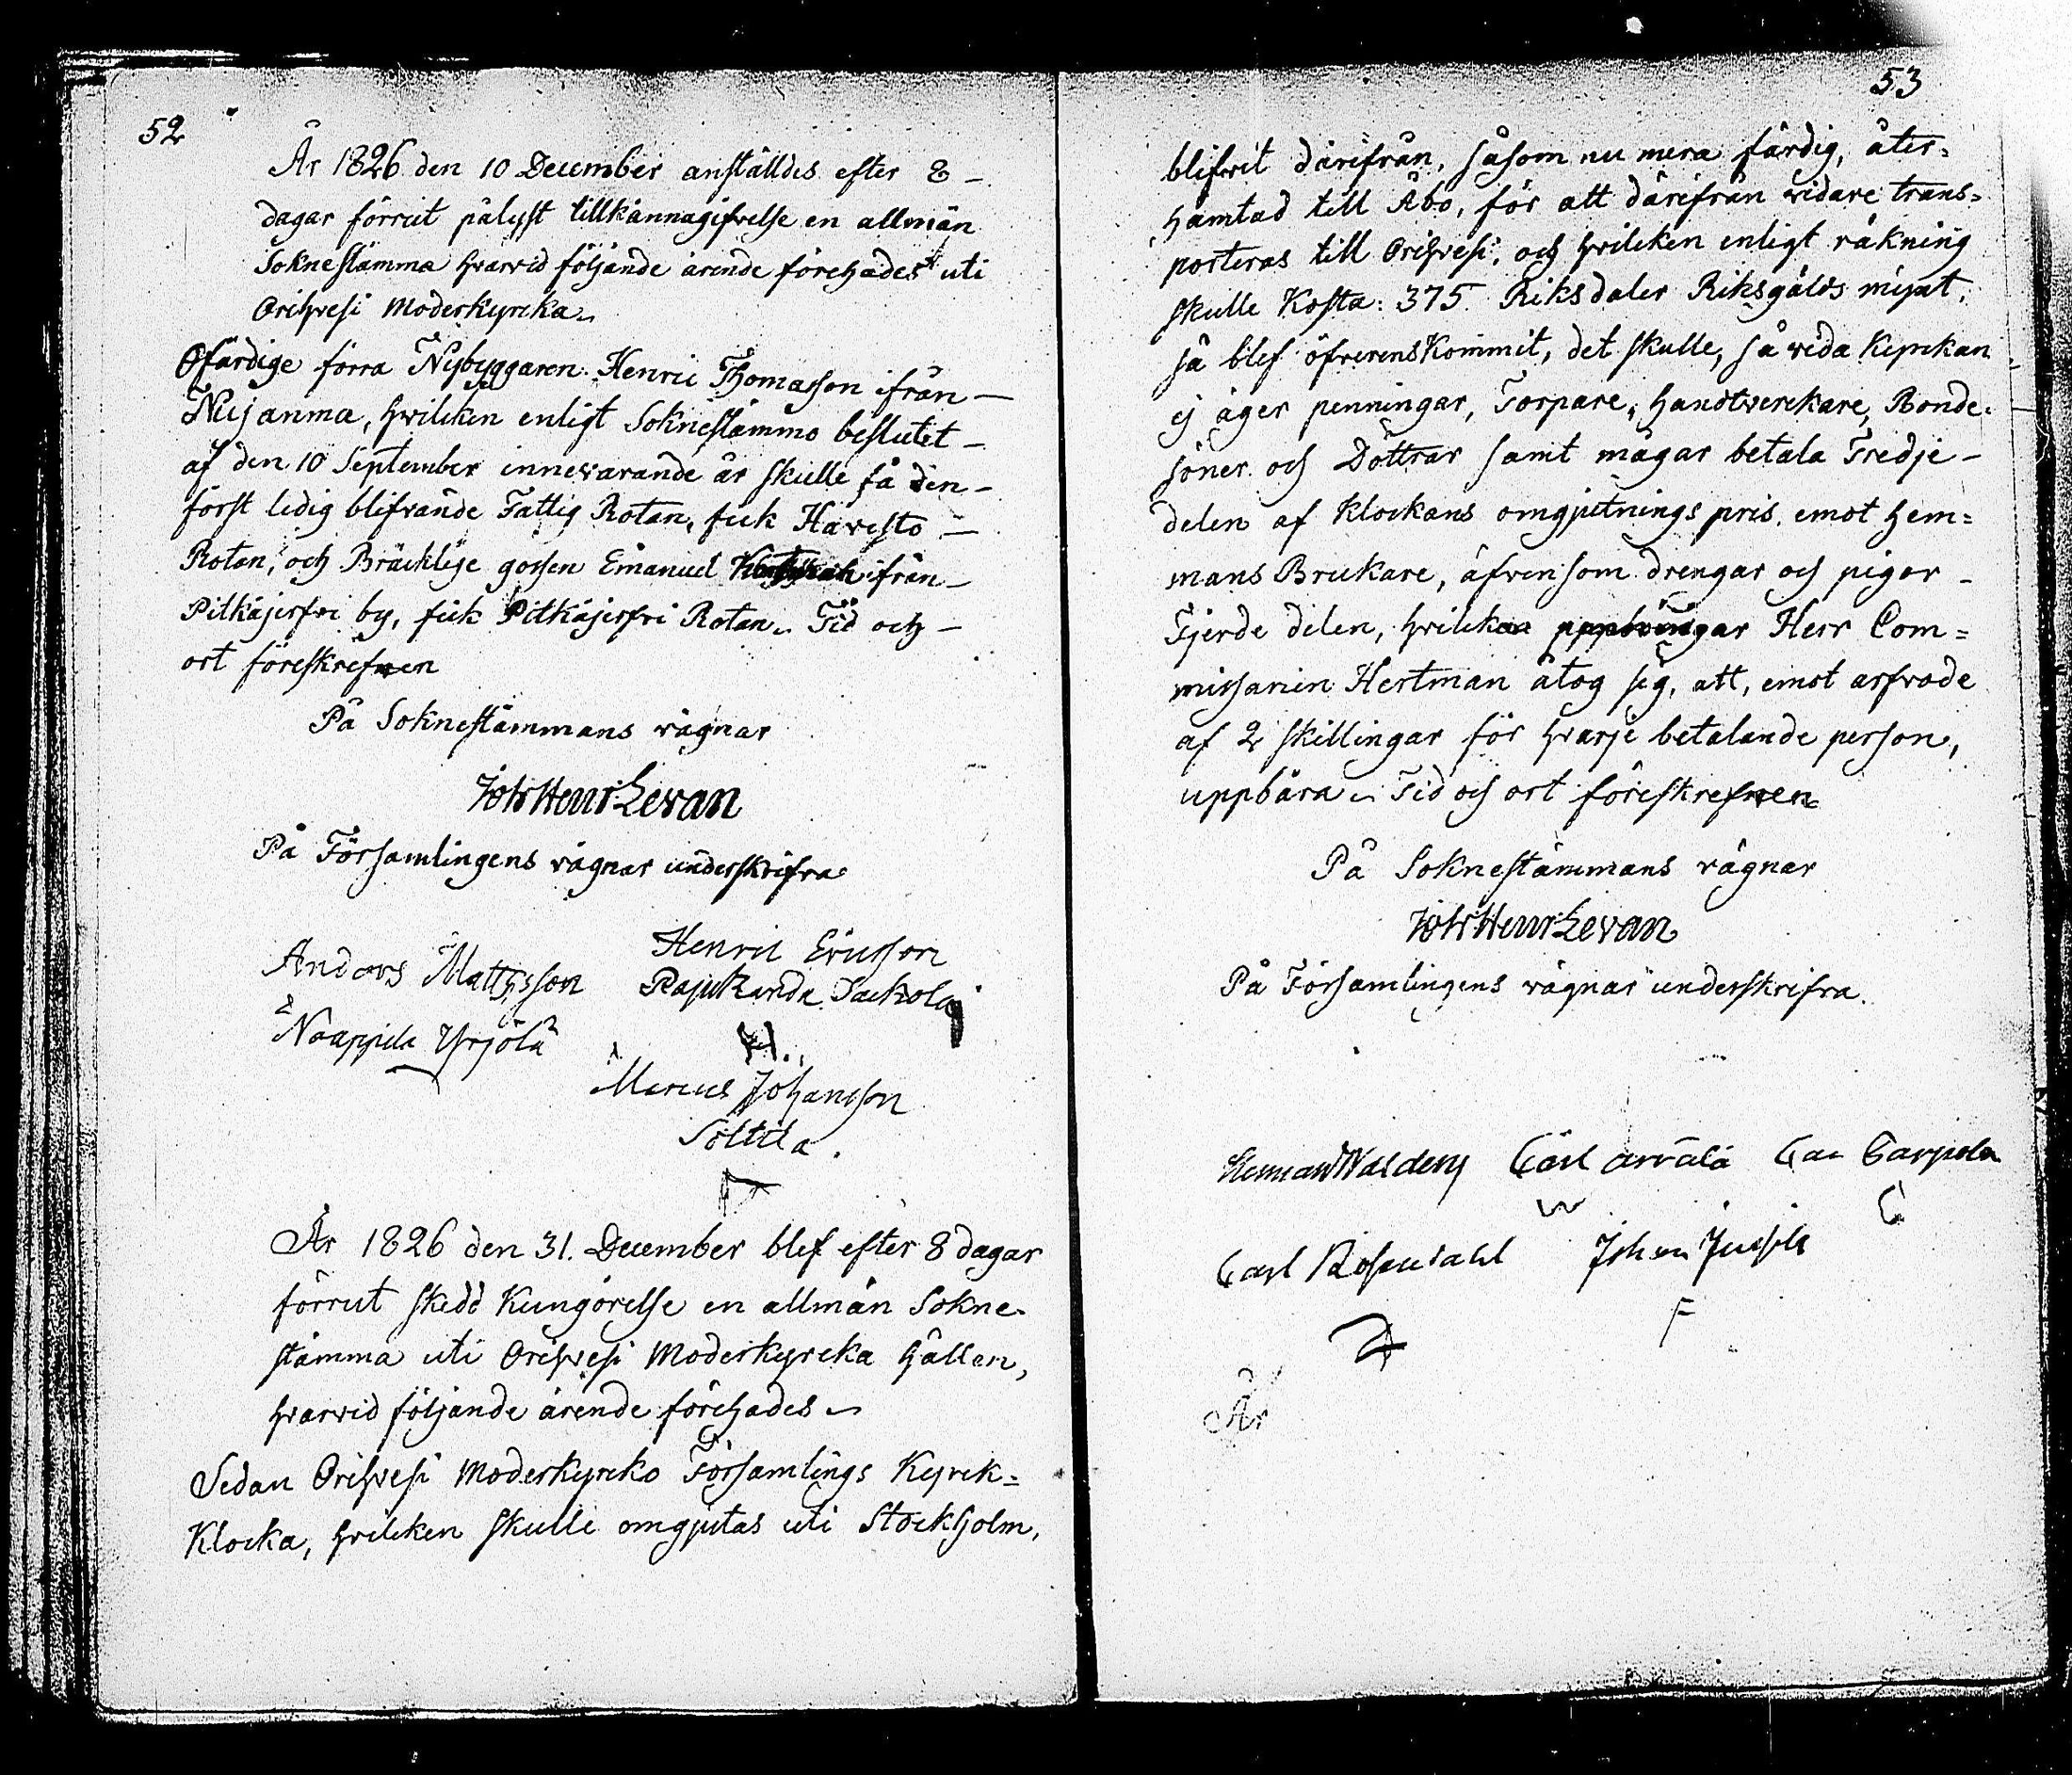 52
År 1826 den 10 December anställdes efter 8 -
dagar förrut pålyst tillkännagifvelse en allmän
Soknestämma hvarvid följande ärende förehades uti
Orihvesi Moderkyrcka
Ofärdige förra Nybyggaren Henric Thomasson ifrån -
Nujanma, hvilcken enligt Soknestämmo beslutet -
af den 10 September innevarande år skulle få den -
först ledig blifvande Fattig Rotan, fick Havisto -
Rotan, och Bräcklige gossen Emanuel ifrån -
Pitkäjerfvi by, fick Pitkäjerfvi Rotan. Tid och -
ort föreskrefven
På Soknestämmans vägnar
Joh Henr Levan
På Församlingens vägnar underskrifva
Anders Mattsson
Naappila Yrjölä
Henric Ericsson
Pajukanda Jackola
H.
Marcus Johansson
Solttila.
År 1826 den 31. December blef efter 8 dagar
förrut skedd Kungörelse en allmän Sokne-
stämma uti Orihvesi Moderkyrcka hållen,
hvarvid följande ärende förehades
Sedan Orihvesi Moderkyrcko Församlings Kyrck=
Klocka, hvilcken skulle omgjutas uti Stockholm,
53
blifvit därifrån, såsom nu mera färdig, åter=
hämtad till Åbo, för att därifrån vidare trans=
porteras till Orihvesi, och hvilcken enligt räkning
skulle Kosta: 375 Riksdaler Riksgälds mynt,
så blef öfverensKommit, det skulle, så vida Kyrckan
ej äger penningar, Torpare, Handtverckare, Bonde-
söner och Döttrar samt mågar betala Tredje -
delen af Klockans omgjutnings pris emot Hem=
mans Bruckare, äfvensom drengar och pigor -
Fjerde delen, hvilcka uppböringar Herr Com=
missarien Hertman åtog sig, att, emot arfvode
af 2 skillingar för hvarje betalande person,
uppbära. Tid och ort föreskrefven
På Soknestämmans vägnar
Joh Henr Levan
På Församlingens vägnar underskrifva.
Herman Walden Carl arvälä Carpela
C
Carl Rosendahl Johan Jussila
F
År